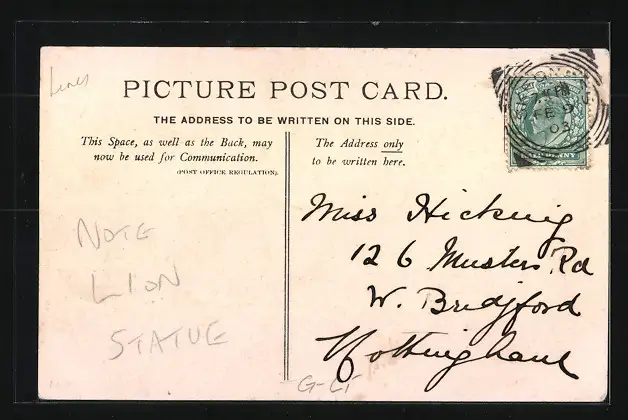 PICTURE POST CARD.
THE ADDRESS TO BE WRITTEN ON THIS SIDE.
This Space, as well as the Back, may
now be used for Communication.
(POST OFFICE REGULATION).
The Address only
to be written here.
NOTE
LION
STATUE
Miss Hickning
126 Musters Rd
W. Bridjford
Nottingham
G-LF
HALF PENNY
FE 9